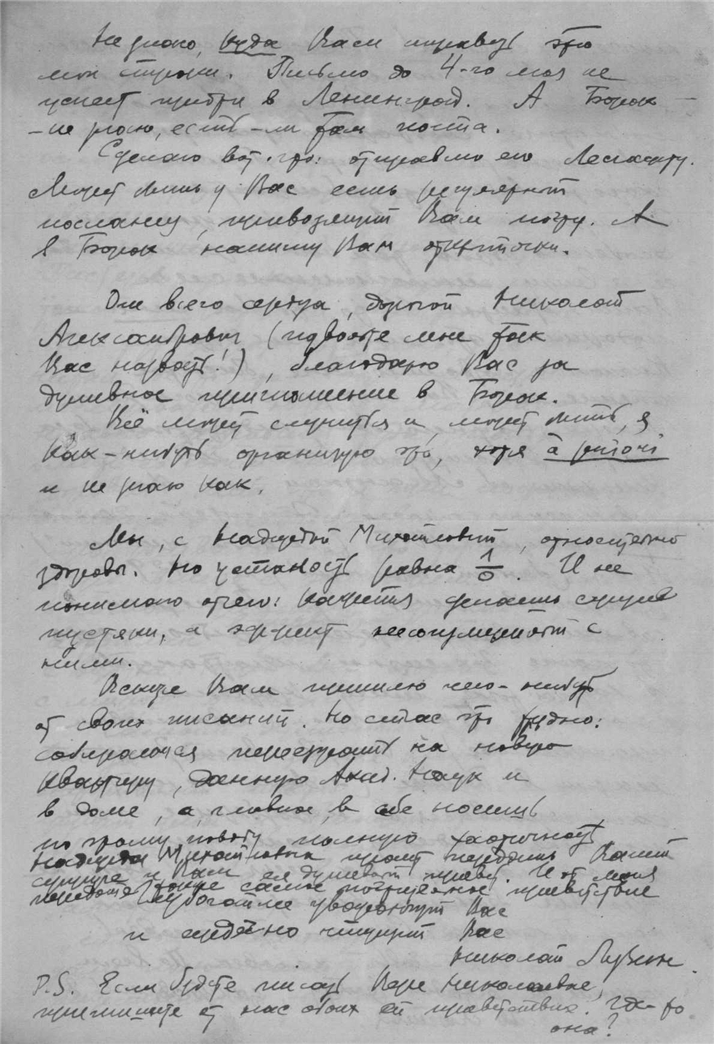 Не знаю, куда Вам направить это
мои строки. Письмо до 4-го мая не
успеет придти в Ленинград. А Борок –
– не знаю, есть-ли там почта.
Сделаю вот что: отправлю его
Может быть у Вас есть регулярный
посланец, привозящий Вам почту. А
в Борок напишу Вам открытки.
От всего сердца, дорогой Николай
Александрович (позвольте мне так
Вас назвать!), благодарю Вас за
душевное приглашение в Борок.
Всё может случиться и, может быть, я
как-нибудь организую это, хотя à priori
и не знаю как.
Мы, с Надеждой Михайловной, относительно
здоровы. Но усталость равна 1/0. И не
понимаю отчего: кажется делаешь сущие
пустяки, а эффект несоизмеримый с
ними.
Вскоре Вам пришлю чего-нибудь
от своих писаний. Но сейчас это трудно:
собираемся переезжать на новую
квартиру, данную Акад. Наук и
в доме, а, главное, в себе носишь
по этому поводу полную хаотичность
Надежда Михайловна просит передать Вашей
супруге и Вам её душевный привет. И от меня
передайте также самое почтенное приветствие
уважающий Вас
и сердечно чтущий Вас
Николай Лузин.
P.S. Если будете писать Вере Николаевне,
припишите от нас обоих ей приветствия. Где-то
она?